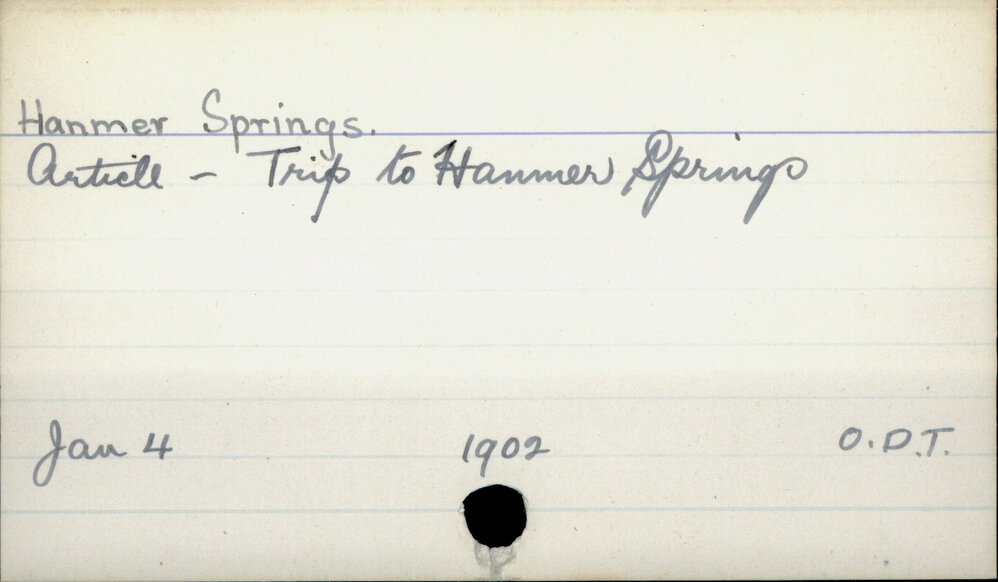 Hanmer Springs.
Article - Trip to Hanmer Springs
Jan 4 1902 O.D.T.